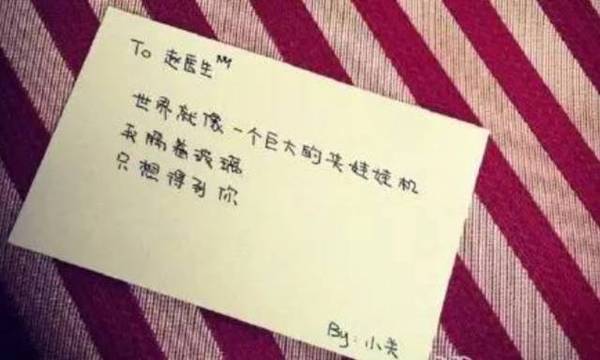 To 赵医生
世界就像一个巨大的夹娃娃机
我隔着玻璃
只想得到你
By：小关